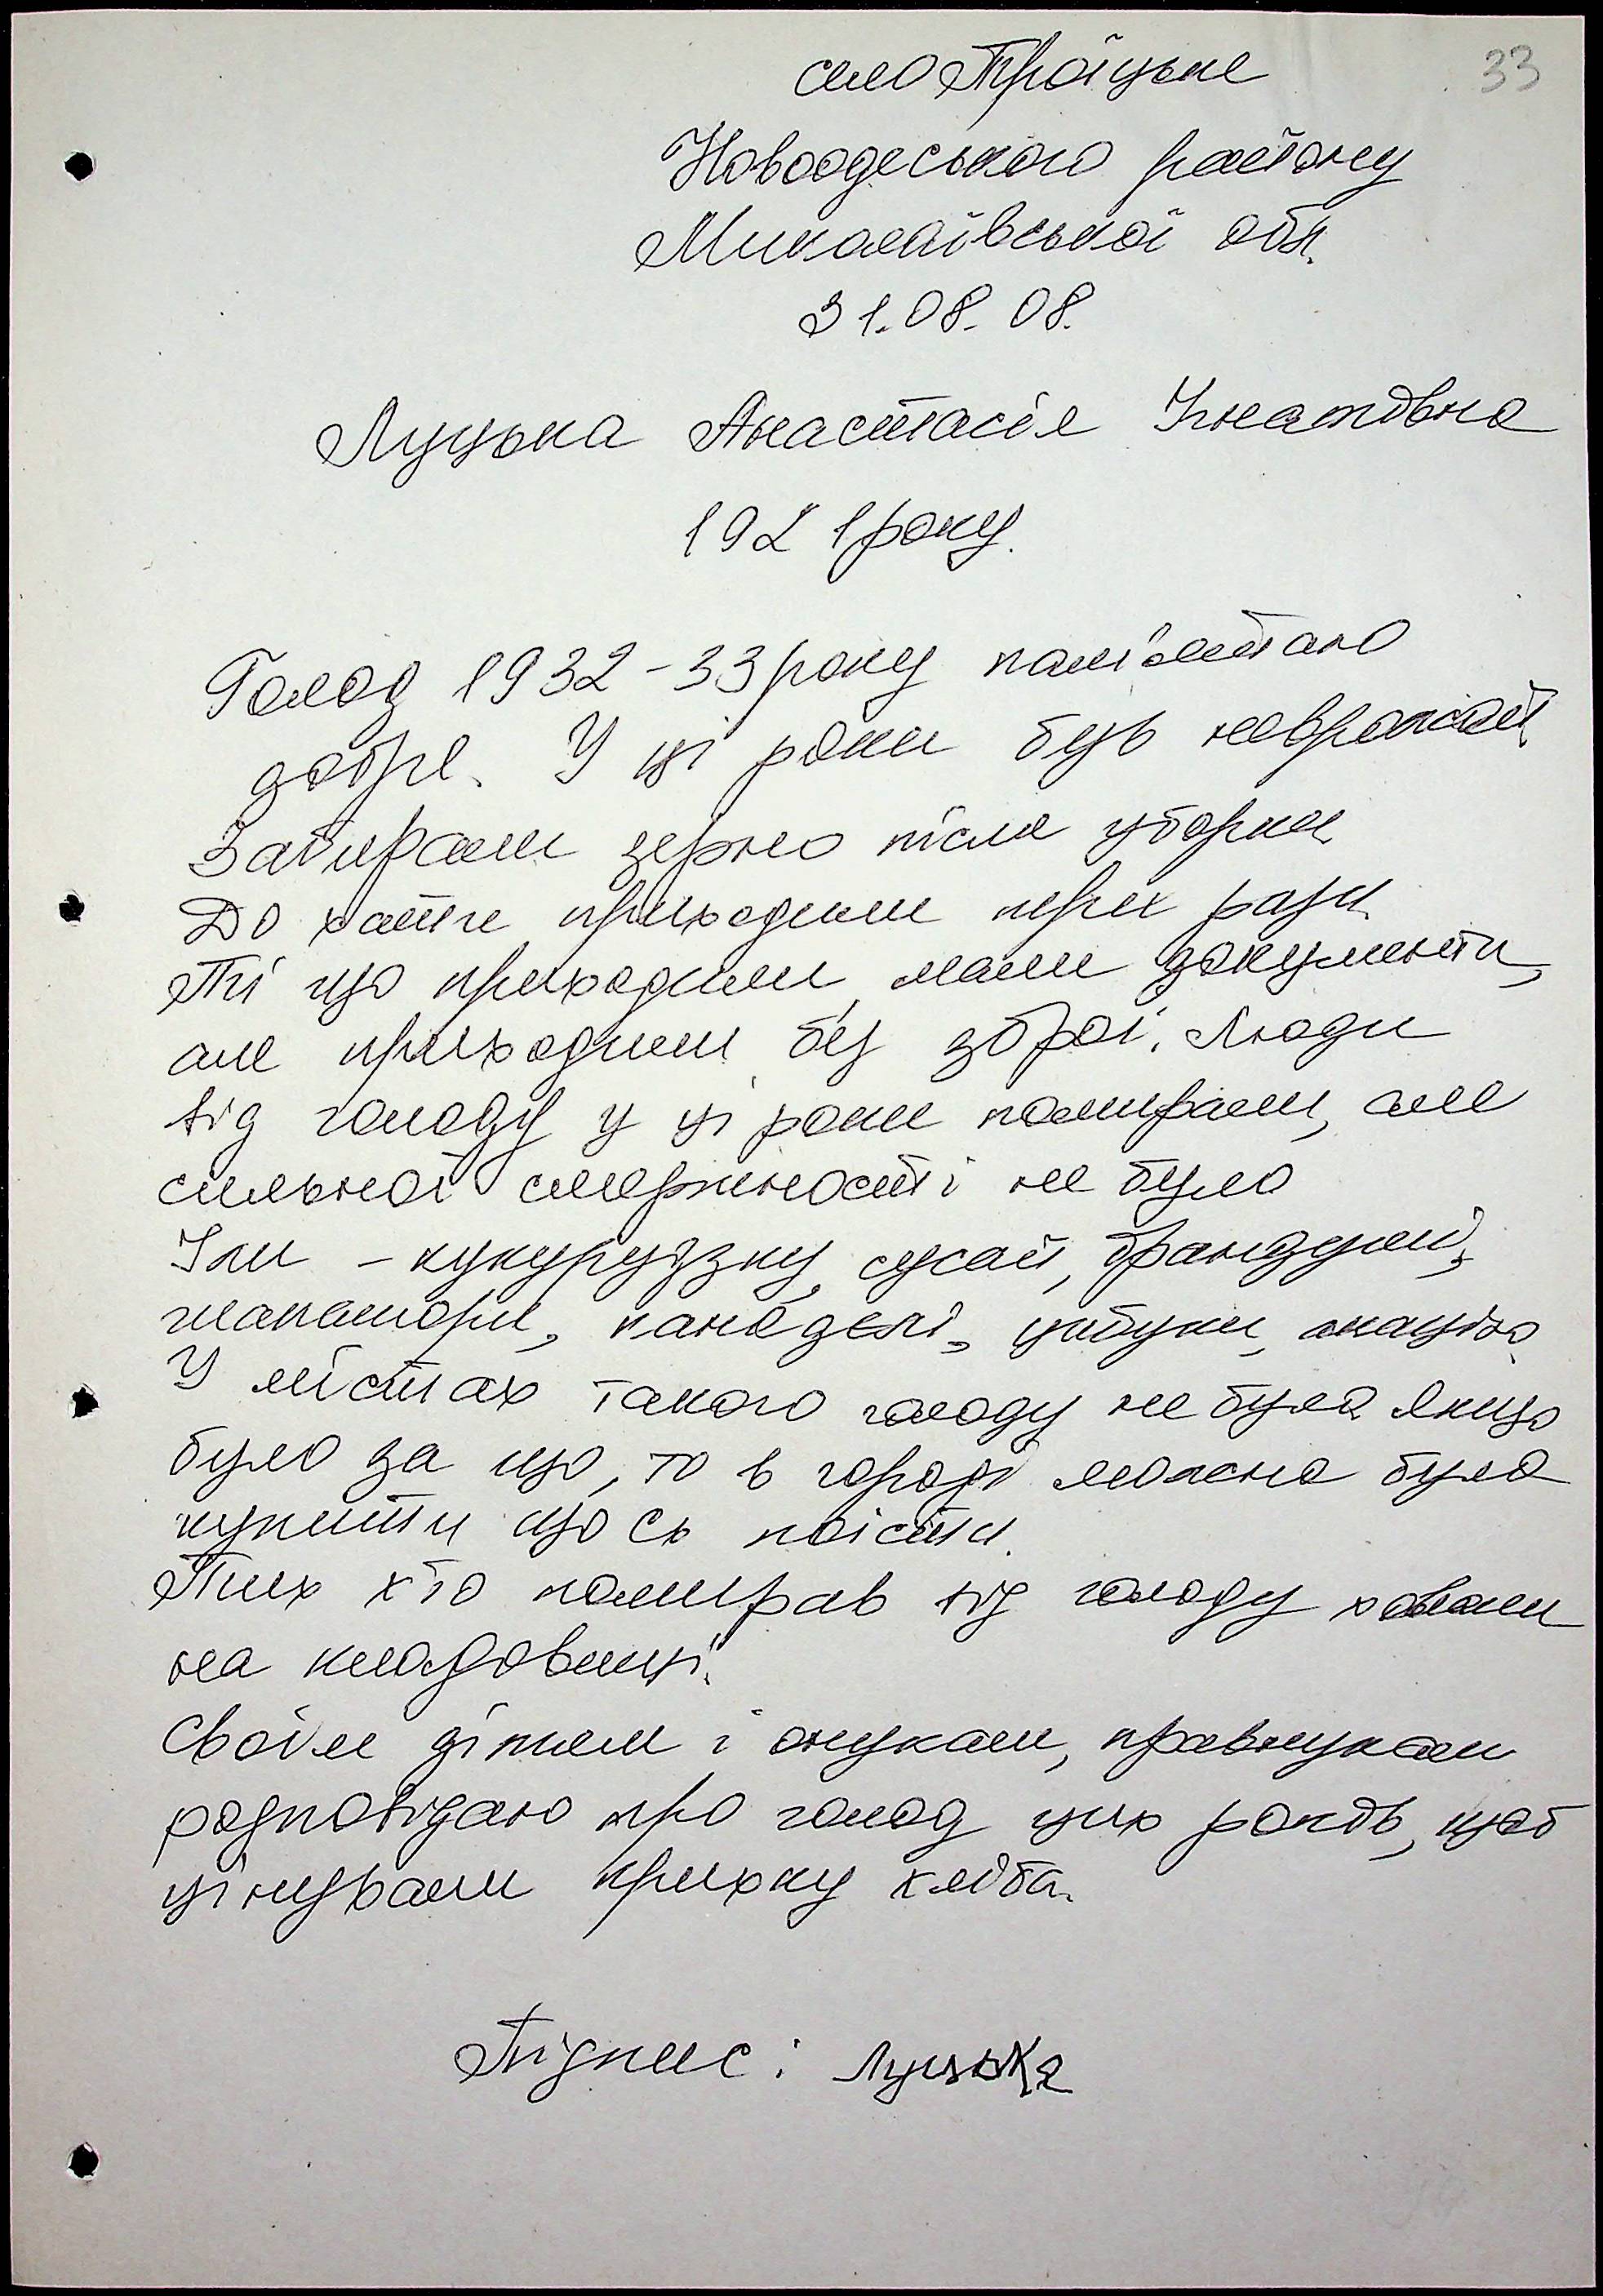 33
село Троїцьке
Новоодеського району
Миколаївської обл.
31.08.08.
Луцька Анастасія Ігнатівна
1921 року.
Голод 1932-33 року пам'ятаю
добре. У ці роки був неврожай
Забирали зерно після уборки
До хати приходили три рази.
Ті що приходили, мали документи,
але приходили без зброї. Люди
від голоду у ці роки помирали, але
сильної смертності не було
Їли - кукурудзку, сусай, бранздулі,
макатори, качадзелі, цибуки, акацію
У містах такого голоду не було. Якщо
було за що, то в городі можна було
купити щось поїсти.
Тих хто помирав від голоду ховали
на кладовищі.
Своїм дітям і онукам, правнукам
розповідаю про голод цих років, щоб
цінували крихку хліба.
Підпис: Луцька